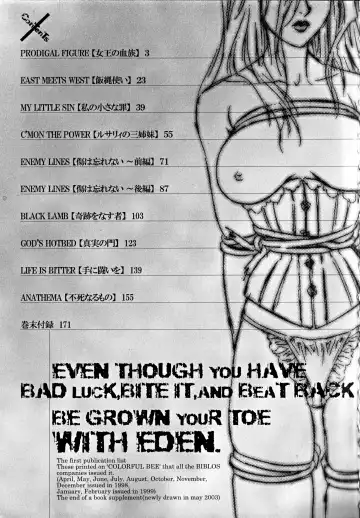 Contents
PRODIGAL FIGURE【女王の血族】3
EAST MEETS WEST【飯縄使い】23
MY LITTLE SIN【私の小さな罪】39
C'MON THE POWER【ルサリィの三姉妹】55
ENEMY LINES【傷は忘れない ～前編】71
ENEMY LINES【傷は忘れない ～後編】87
BLACK LAMB【奇跡をなす者】103
GOD'S HOTBED【真実の門】123
LIFE IS BITTER【手に闘いを】139
ANATHEMA【不死なるもの】155
巻末付録 171
EVEN THOUGH YOU HAVE
BAD LUCK,BITE IT,AND BEAT BACK
BE GROWN YOUR TOE
WITH EDEN.
The first publication list
These printed on 'COLORFUL BEE' that all the BIBLOS
companies issued it.
(April, May, June, July. August, October, November,
December issued in 1998,
January, February issued in 1999)
The end of a book supplement(newly drawn in may 2003)